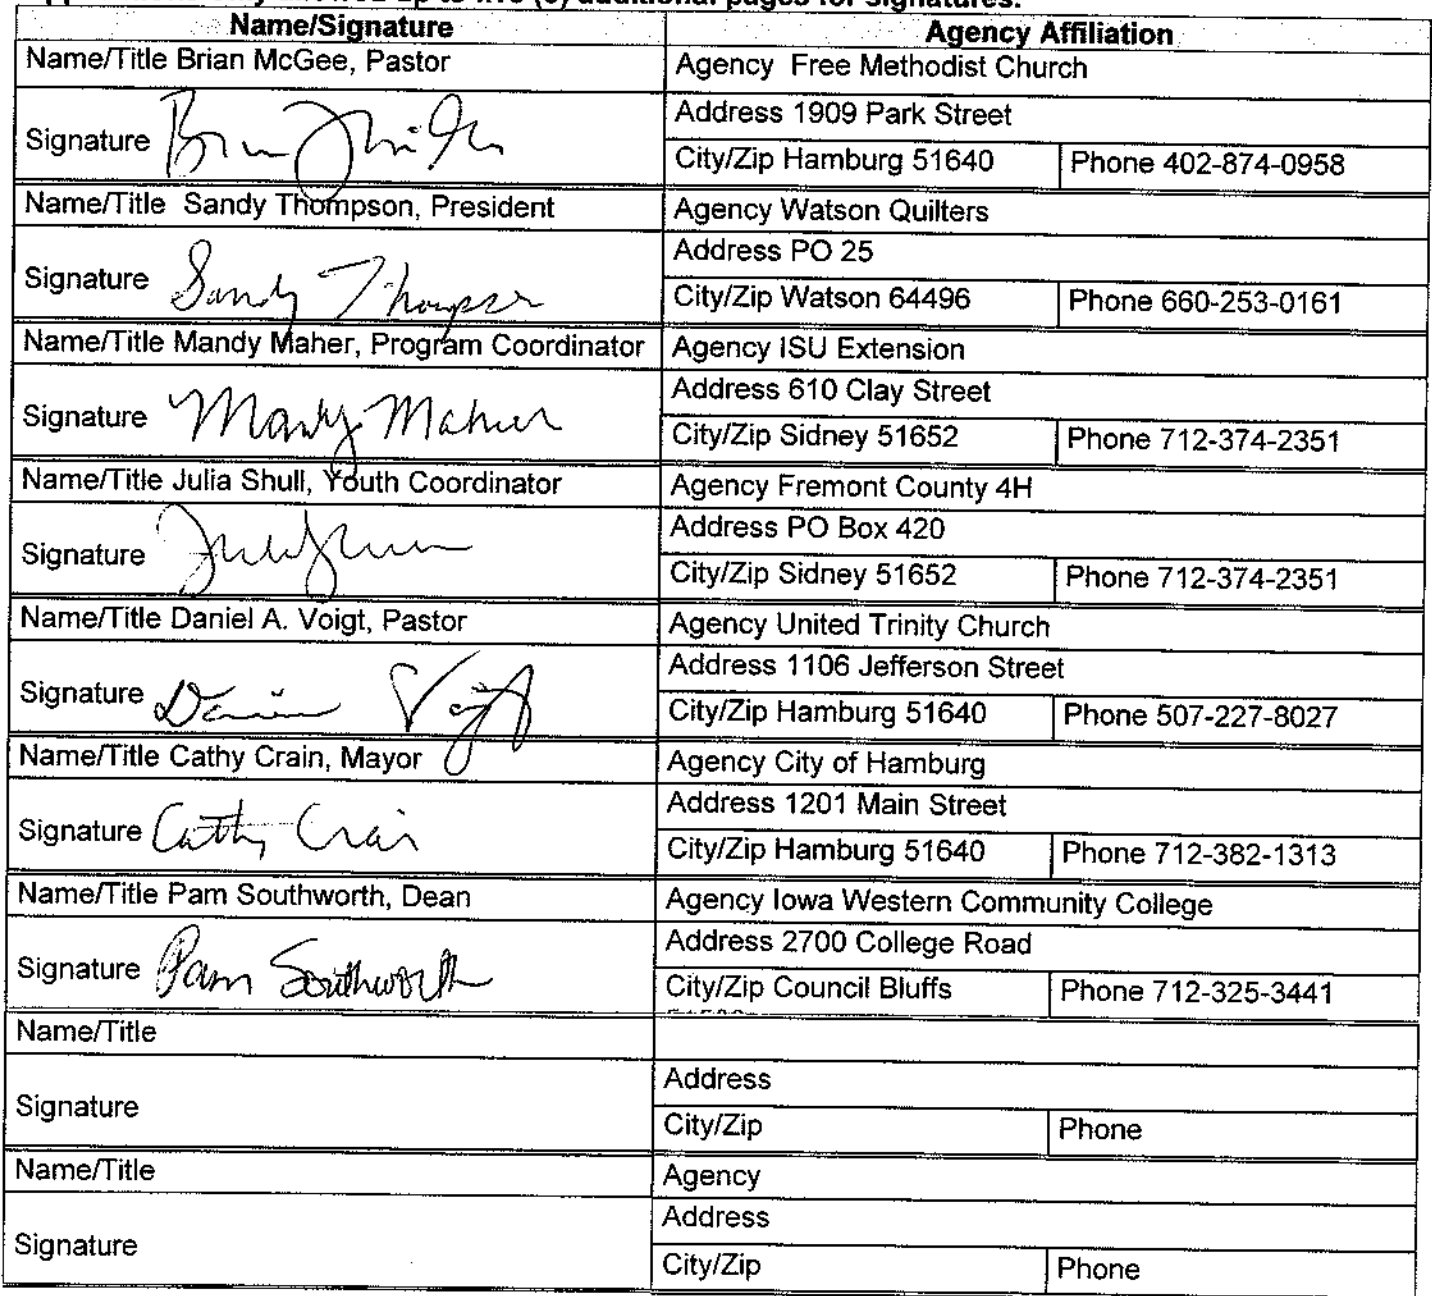 up to five (5) additional pages for signatures.
Name/Signature Agency Affiliation
Name/Title Brian McGee, Pastor
Agency Free Methodist Church
Signature
Address 1909 Park Street
City/Zip Hamburg 51640 Phone 402-874-0958
Name/Title Sandy Thompson, President
Agency Watson Quilters
Signature Sandy Thompson
Address PO 25
City/Zip Watson 64496 Phone 660-253-0161
Name/Title Mandy Maher, Program Coordinator
Agency ISU Extension
Signature Mandy Maher
Address 610 Clay Street
City/Zip Sidney 51652 Phone 712-374-2351
Name/Title Julia Shull, Youth Coordinator
Agency Fremont County 4H
Signature
Address PO Box 420
City/Zip Sidney 51652 Phone 712-374-2351
Name/Title Daniel A. Voigt, Pastor
Agency United Trinity Church
Signature Daniel Voigt
Address 1106 Jefferson Street
City/Zip Hamburg 51640 Phone 507-227-8027
Name/Title Cathy Crain, Mayor
Agency City of Hamburg
Signature Cathy Crain
Address 1201 Main Street
City/Zip Hamburg 51640 Phone 712-382-1313
Name/Title Pam Southworth, Dean
Agency Iowa Western Community College
Signature Pam Southworth
Address 2700 College Road
City/Zip Council Bluffs Phone 712-325-3441
Name/Title
Signature
Address
City/Zip Phone
Name/Title
Agency
Signature
Address
City/Zip Phone